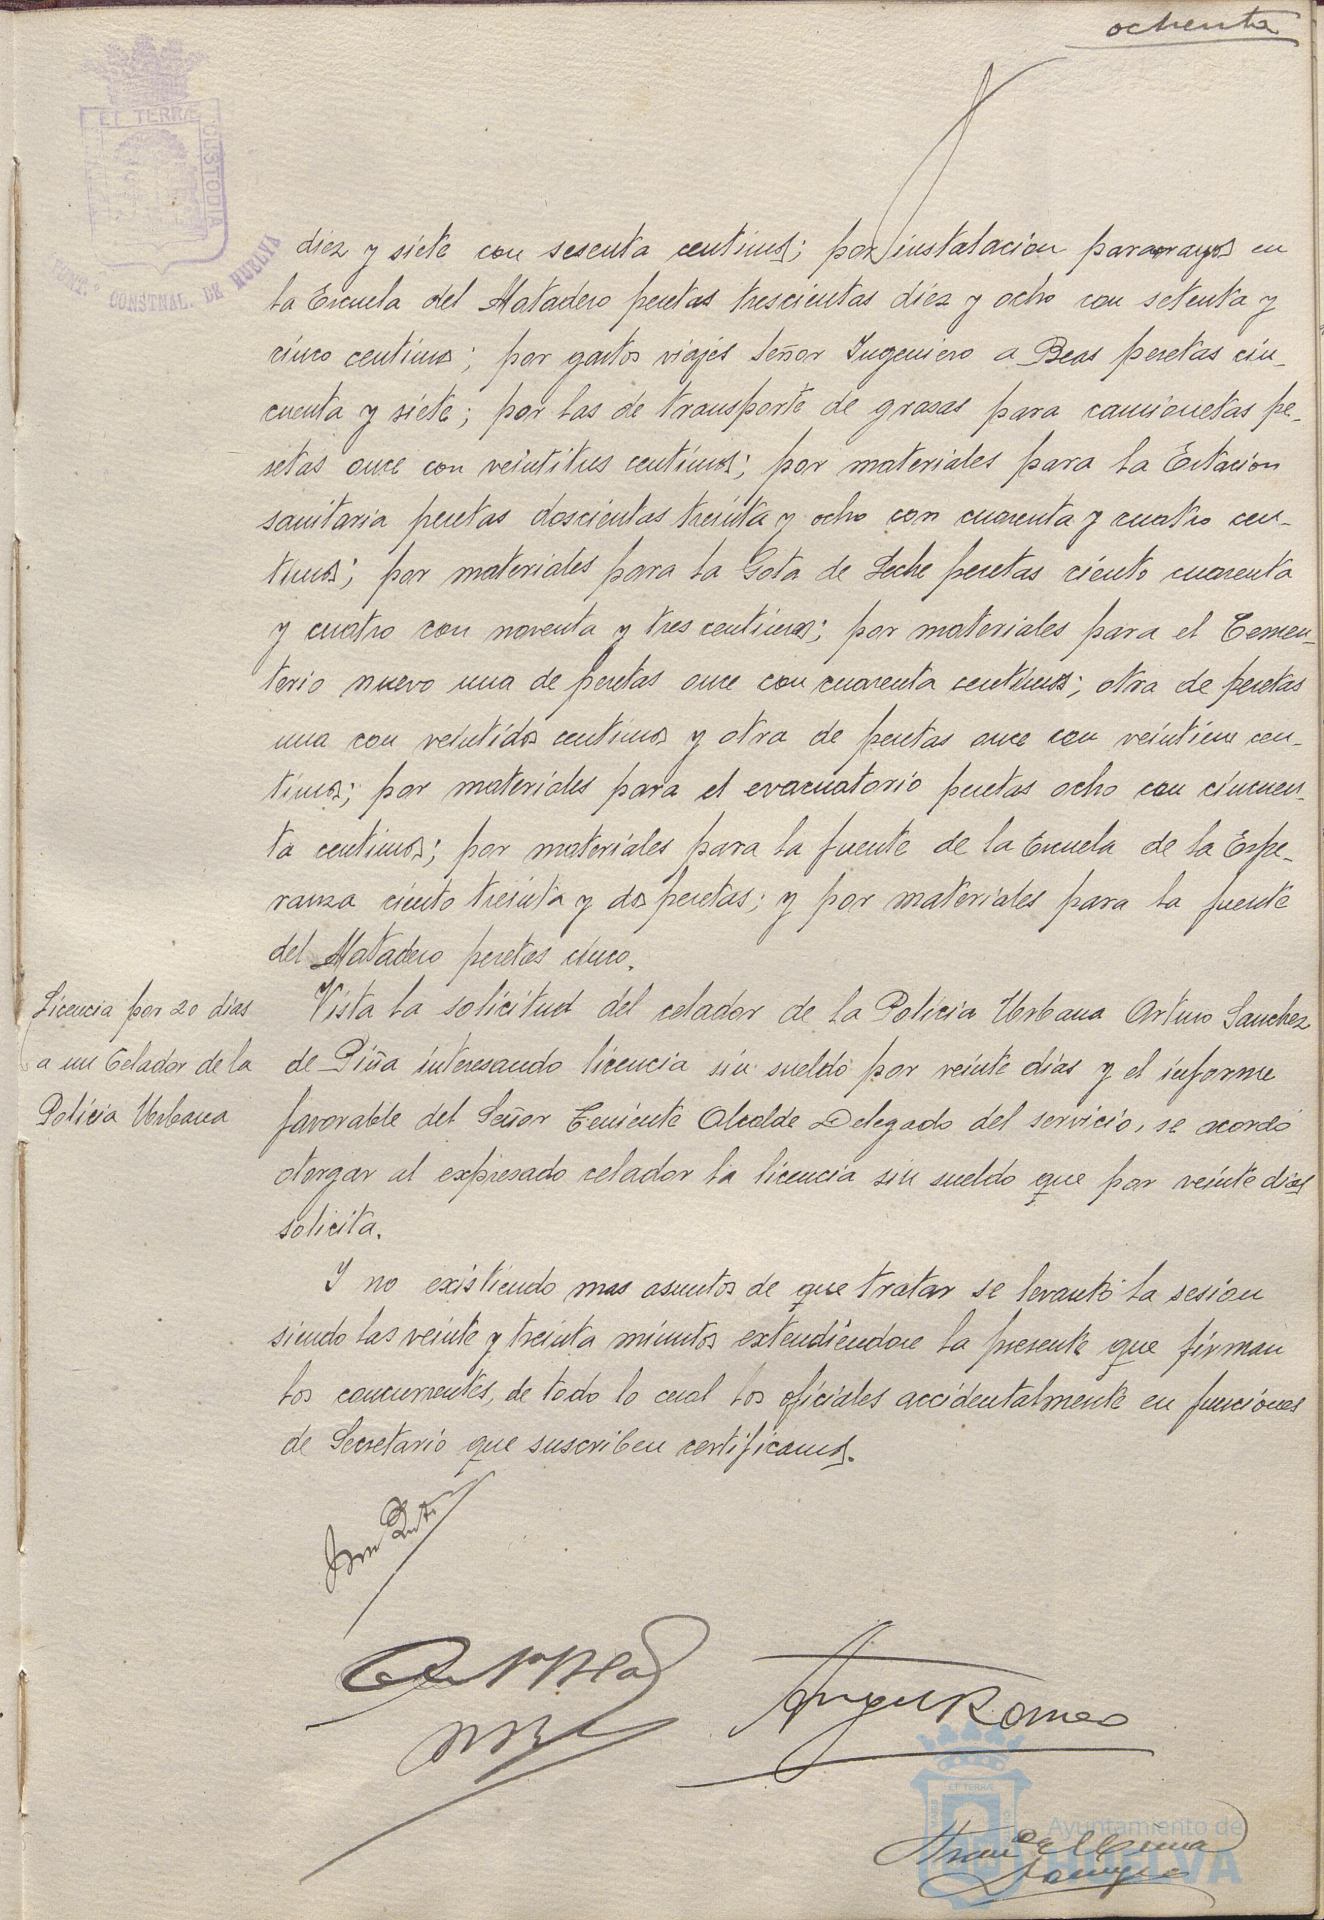 ochenta
ET TERRÆ
CUSTODIA
CONSTNAL. DE HUELVA
diez y siete con sesenta centimos; por instalacion pararrayos en
la Escuela del Matadero pesetas trescientas diez y ocho con setenta y
cinco centimos; por gastos viajes Señor Ingeniero a Beas pesetas cin-
cuenta y siete; por las de transporte de grasas para camionetas pe-
setas once con veintitres centimos; por materiales para la Estacion
sanitaria pesetas doscientas treinta y ocho con cuarenta y cuatro cen-
timos; por materiales para la Gota de Leche pesetas ciento cuarenta
y cuatro con noventa y tres centimos; por materiales para el Cemen-
terio nuevo una de pesetas once con cuarenta centimos; otra de pesetas
una con veintidos centimos y otra de pesetas once con cen-
timos; por materiales para el evacuatorio pesetas ocho con cincuen-
ta centimos; por materiales para la fuente de la Escuela de la Espe-
ranza ciento treinta y dos pesetas; y por materiales para la fuente
del Matadero pesetas cinco.
Licencia por 20 dias
a un Celador de la
Policia Urbana
Vista la solicitud del celador de la Policia Urbana Arturo Sanchez
de Piña interesando licencia sin sueldo por veinte dias y el informe
favorable del Señor Teniente Alcalde Delegado del servicio, se acordó
otorgar al expresado celador la licencia sin sueldo que por veinte dias
solicita.
Y no existiendo mas asuntos de que tratar se levantó la sesion
siendo las veinte y treinta minutos extendiendose la presente que firman
los concurrentes, de todo lo cual los oficiales accidentalmente en funciones
de Secretario que suscriben certificamos.
Angel Romeo
Ayuntamiento de
HUELVA